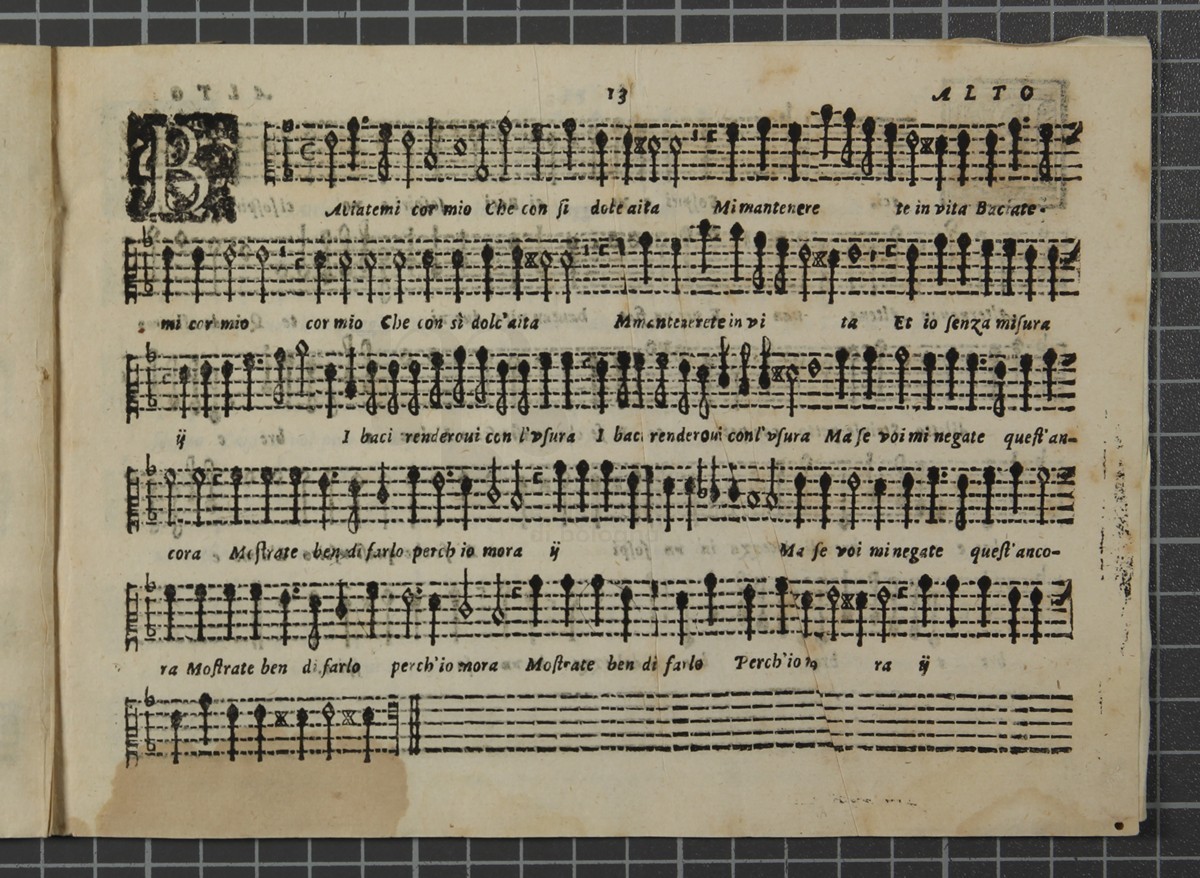 13 ALTO
B
Aciatemi cor mio Che con si dolc'aita Mi mantenere te in vita Baciate-
mi cor mio cor mio Che con si dolc'aita Mi mantenerete in vi ta Et io senza misura
ij I baci renderoui con l'vsura I baci renderoui con l'vsura Ma se voi mi negate quest'an-
cora Mostrate ben di farlo perch'io mora ij Ma se voi mi negate quest'anco-
ra Mostrate ben di farlo perch'io mora Mostrate ben di farlo Perch'io ra ij